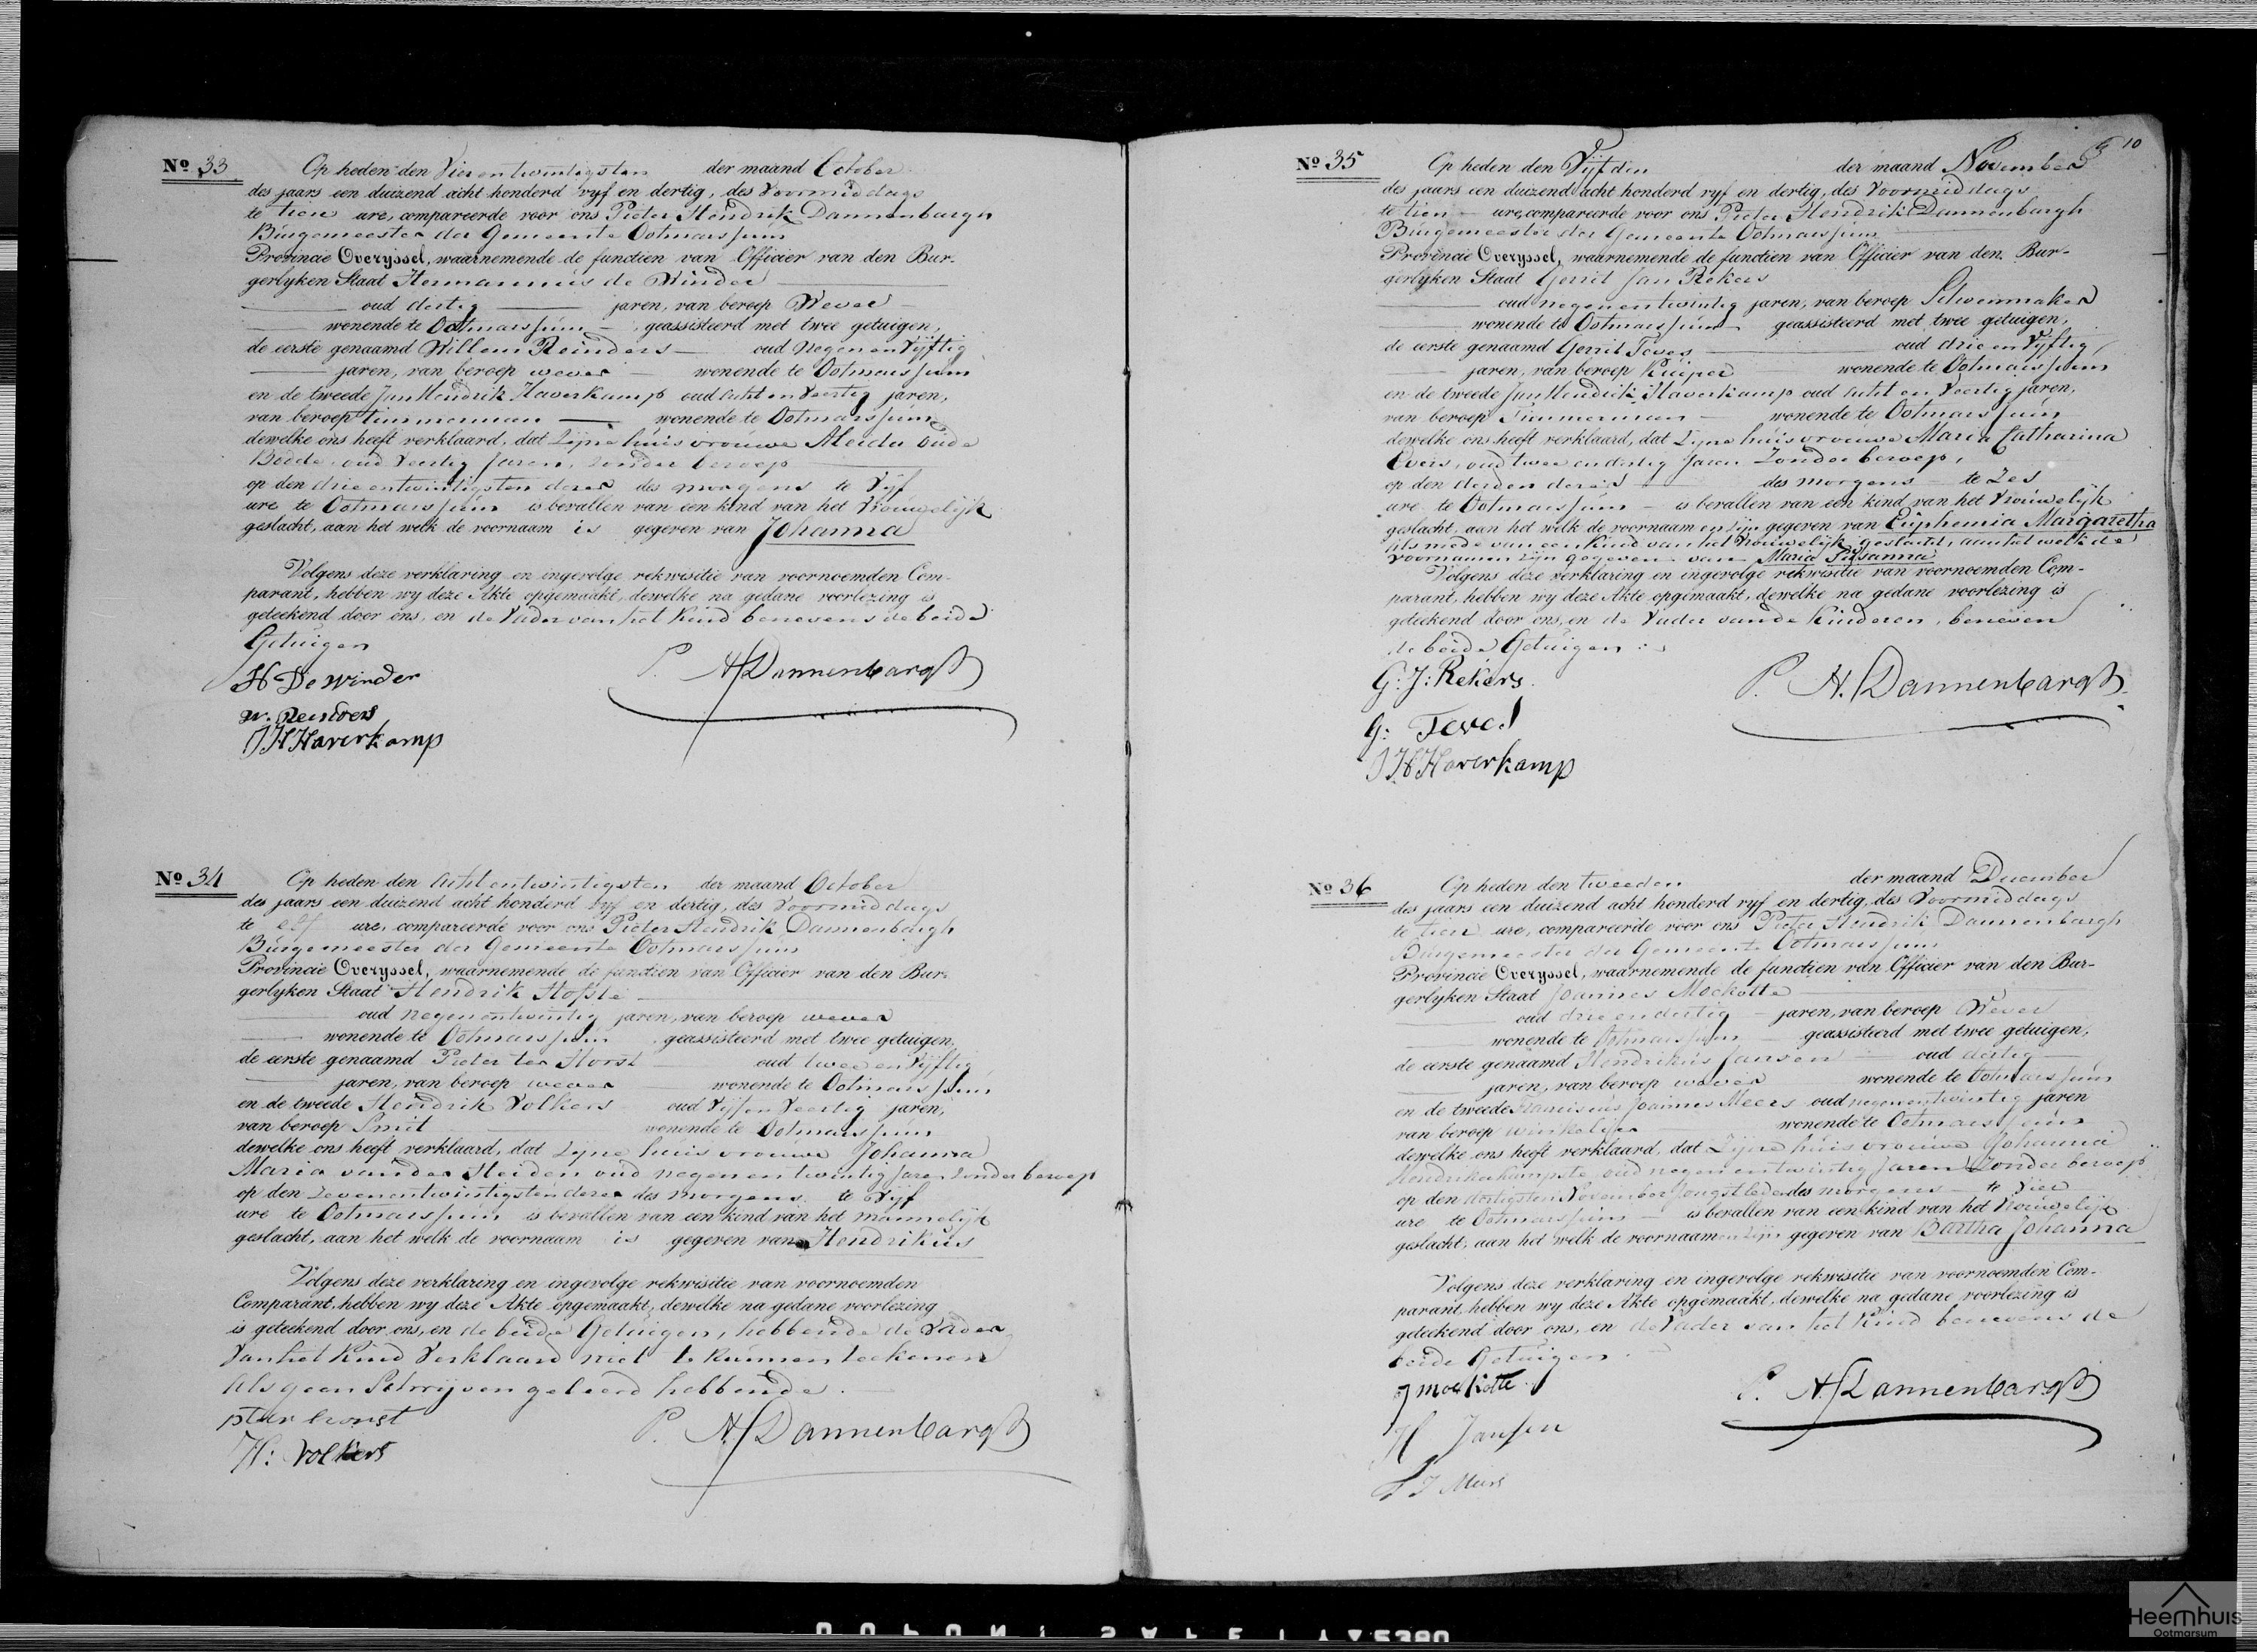 No 33 Op heden den Vierentwintigsten der maand October
des jaars een duizend acht honderd vyf en dertig, des Voormiddags
te tien ure, compareerde voor ons Pieter Hendrik Dannenbargh
Burgemeester der Gemeente Ootmarssum
Provincie Overyssel, waarnemende de functien van Officier van den Bur-
gerlyken Staat Hermannus de Winder
oud dertig jaren, van beroep Wever
wonende te Ootmarssum geassisteerd met twee getuigen,
de eerste genaamd Willem Reinders oud Negen en Vyftig
jaren, van beroep wever wonende te Ootmarssum
en de tweede Jan Hendrik Haverkamp oud acht en Veertig jaren,
van beroep timmerman wonende te Ootmarssum
dewelke ons heeft verklaard, dat Zyne huisvrouwe Aleida oude
Bodde, oud Veertig Jaren, zonder beroep
op den drie entwintigsten dezer des morgens te Vyf
ure te Ootmarssum is bevallen van een kind van het Vrouwelyk
geslacht, aan het welk de voornaam is gegeven van Johanna
Volgens deze verklaring en ingevolge rekwisitie van voornoemden Com-
parant, hebben wy deze Akte opgemaakt, dewelke na gedane voorlezing is
geteekend door ons, en de Vader van het Kind benevens de beide
Getuigen
H De Winder
P. H. Dannenbargh
W. Reinders
J H Haverkamp
No 34 Op heden den Acht entwintigsten der maand October
des jaars een duizend acht honderd vyf en dertig, des Voormiddags
te elf ure, compareerde voor ons Pieter Hendrik Dannenbargh
Burgemeester der Gemeente Ootmarssum
Provincie Overyssel, waarnemende de functien van Officier van den Bur-
gerlyken Staat Hendrik Hofste
oud negenentwintig jaren, van beroep wever
wonende te Ootmarssum geassisteerd met twee getuigen,
de eerste genaamd Pieter ter Horst oud twee en Vyftig
jaren, van beroep wever wonende te Ootmarssum
en de tweede Hendrik Volkers oud Vyf en Veertig jaren,
van beroep Smit wonende te Ootmarssum
dewelke ons heeft verklaard, dat Zyne huisvrouwe Johanna
Maria van der Heiden oud negen en twintig Jaren zonder beroep
op den Zevenentwintigsten dezer des morgens te Vyf
ure te Ootmarssum is bevallen van een kind van het mannelyk
geslacht, aan het welk de voornaam is gegeven van Hendrikus
Volgens deze verklaring en ingevolge rekwisitie van voornoemden
Comparant, hebben wy deze Akte opgemaakt, dewelke na gedane voorlezing
is geteekend door ons, en de beide Getuigen, hebbende de Vader
van het Kind Verklaard niet te kunnen teekenen
Als geen Schryven geleerd hebbende.
P. H. Dannenbargh
H: Volkers
10
No 35 Op heden den Vyfden der maand November
des jaars een duizend acht honderd vyf en dertig, des Voormiddags
te tien ure, compareerde voor ons Pieter Hendrik Dannenbargh
Burgemeester der Gemeente Ootmarssum
Provincie Overyssel, waarnemende de functien van Officier van den Bur-
gerlyken Staat Gerrit Jan Rekers
oud negenentwintig jaren, van beroep Schoenmaker
wonende te Ootmarssum geassisteerd met twee getuigen,
de eerste genaamd Gerrit Teves oud drie en Vyftig
jaren, van beroep Kuiper wonende te Ootmarssum
en de tweede Jan Hendrik Haverkamp oud acht en Veertig jaren,
van beroep Timmerman wonende te Ootmarssum
dewelke ons heeft verklaard, dat Zyne huisvrouwe Maria Catharina
Evers, oud twee en dertig Jaren Zonder beroep,
op den derden dezer des morgens te Zes
ure te Ootmarssum is bevallen van een kind van het Vrouwelyk
geslacht, aan het welk de voornaamen zyn gegeven van Euphemia Margaretha
Als mede van een Kind van het Vrouwelyk geslacht, aan het welk de
voornamen zyn gegeven van Maria Susanna
Volgens deze verklaring en ingevolge rekwisitie van voornoemden Com-
parant, hebben wy deze Akte opgemaakt, dewelke na gedane voorlezing is
geteekend door ons, en de Vader van de Kinderen, beneven
de beide Getuigen.
G: J: Rekers
P. H. Dannenbargh
G: Teves
J H Haverkamp
No 36 Op heden den tweeden der maand December
des jaars een duizend acht honderd vyf en dertig, des Voormiddags
te tien ure, compareerde voor ons Pieter Hendrik Dannenbargh
Burgemeester der Gemeente Ootmarssum
Provincie Overyssel, waarnemende de functien van Officier van den Bur-
gerlyken Staat Joannes Mockotte
oud drie en dertig jaren, van beroep Wever
wonende te Ootmarssum geassisteerd met twee getuigen,
de eerste genaamd Hendrikus Jansen oud dertig
jaren, van beroep wever wonende te Ootmarssum
en de tweede Franciscus Joannes Meers oud negenentwintig jaren
van beroep winkelier wonende te Ootmarssum
dewelke ons heeft verklaard, dat Zyne huisvrouwe Johanna
oud negen en twintig Jaren Zonder beroep
op den dertigsten November Jongstleden des morgens te Vier
ure te Ootmarssum is bevallen van een kind van het Vrouwelyk
geslacht, aan het welk de voornaamen zyn gegeven van Bartha Johanna
Volgens deze verklaring en ingevolge rekwisitie van voornoemden Com-
parant, hebben wy deze Akte opgemaakt, dewelke na gedane voorlezing is
geteekend door ons, en de Vader van het Kind benevens de
beide Getuigen.
J Mockotte
P. H. Dannenbargh
H Jansen
F J Meers
Heemhuis
Ootmarsum